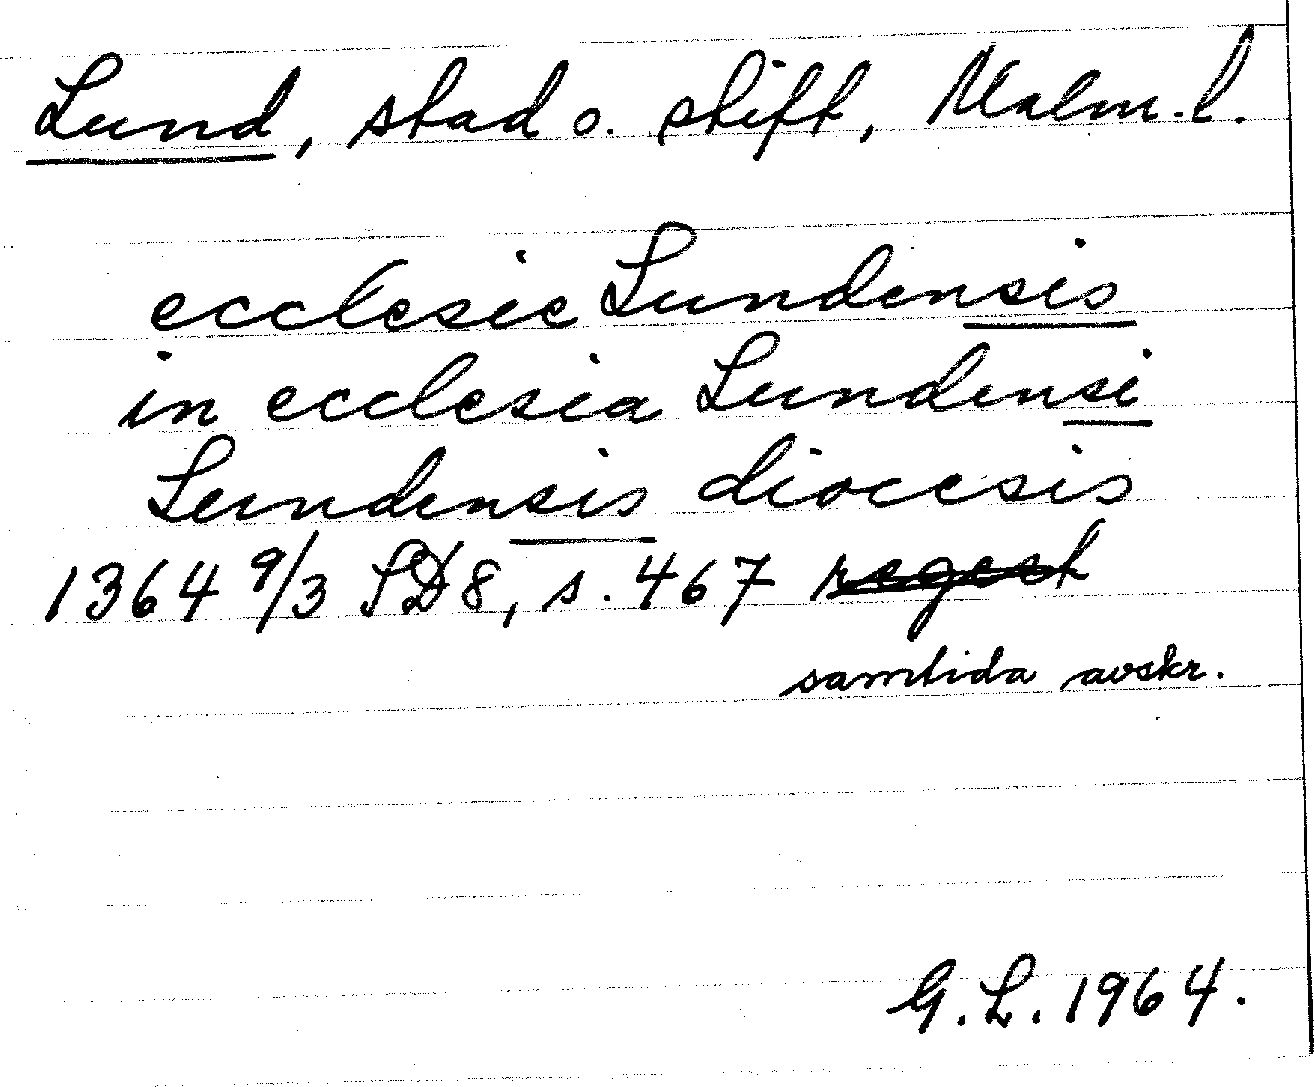 Lund, stad o. stift, Malm.l.
ecclesie Lundensis
in ecclesia Lundensi
Lundensis diocesis
1364 9/3 SD8, s. 467 regest
samtida avskr.
G.L. 1964.